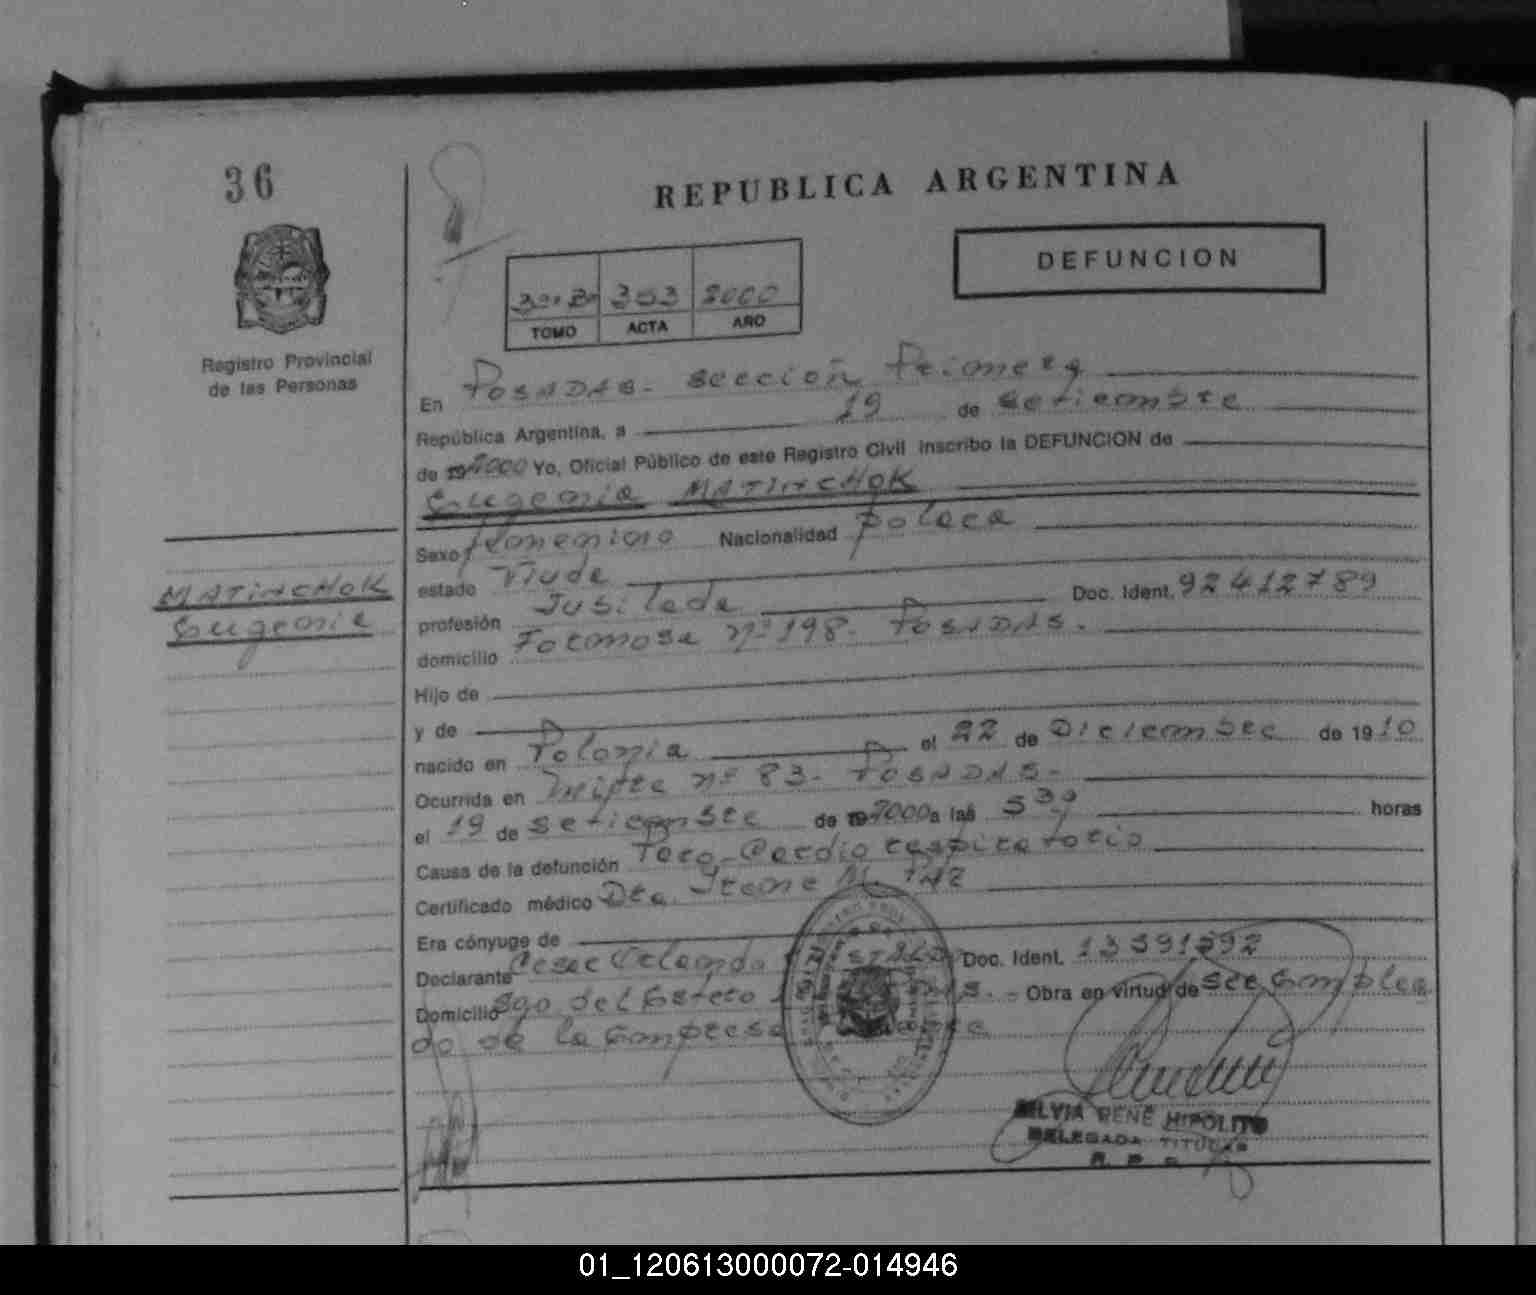 36
REPUBLICA ARGENTINA
DEFUNCION
353 2000
TOMO ACTA AÑO
Registro Provincial
de las Personas
En Posadas - sección Primera
República Argentina, a 19 de setiembre
de 19 2000 Yo, Oficial Público de este Registro Civil inscribo la DEFUNCION de
Eugenia MATINCHOK
Sexo femenino Nacionalidad polaca
estado Viuda
profesión Jubilada Doc. Ident. 92412789
domicilio Formosa nº 198. Posadas.
MATINCHOK
Eugenia
Hijo de
y de
nacido en Polonia el 22 de Diciembre de 1910
Ocurrida en nº 83- Posadas-
el 19 de setiembre de 19 2000 a las 5 30 horas
Causa de la defunción Paro-Cardio respiratorio
Certificado médico Dra. Irene M. PAZ
Era cónyuge de
Declarante Cesar Orlando Doc. Ident. 13391592
Domicilio Sgo del Estero - Obra en virtud de ser Emplea
do de la Empresa
SILVIA RENE HIPOLITO
DELEGADA TITULAR
01_120613000072-014946